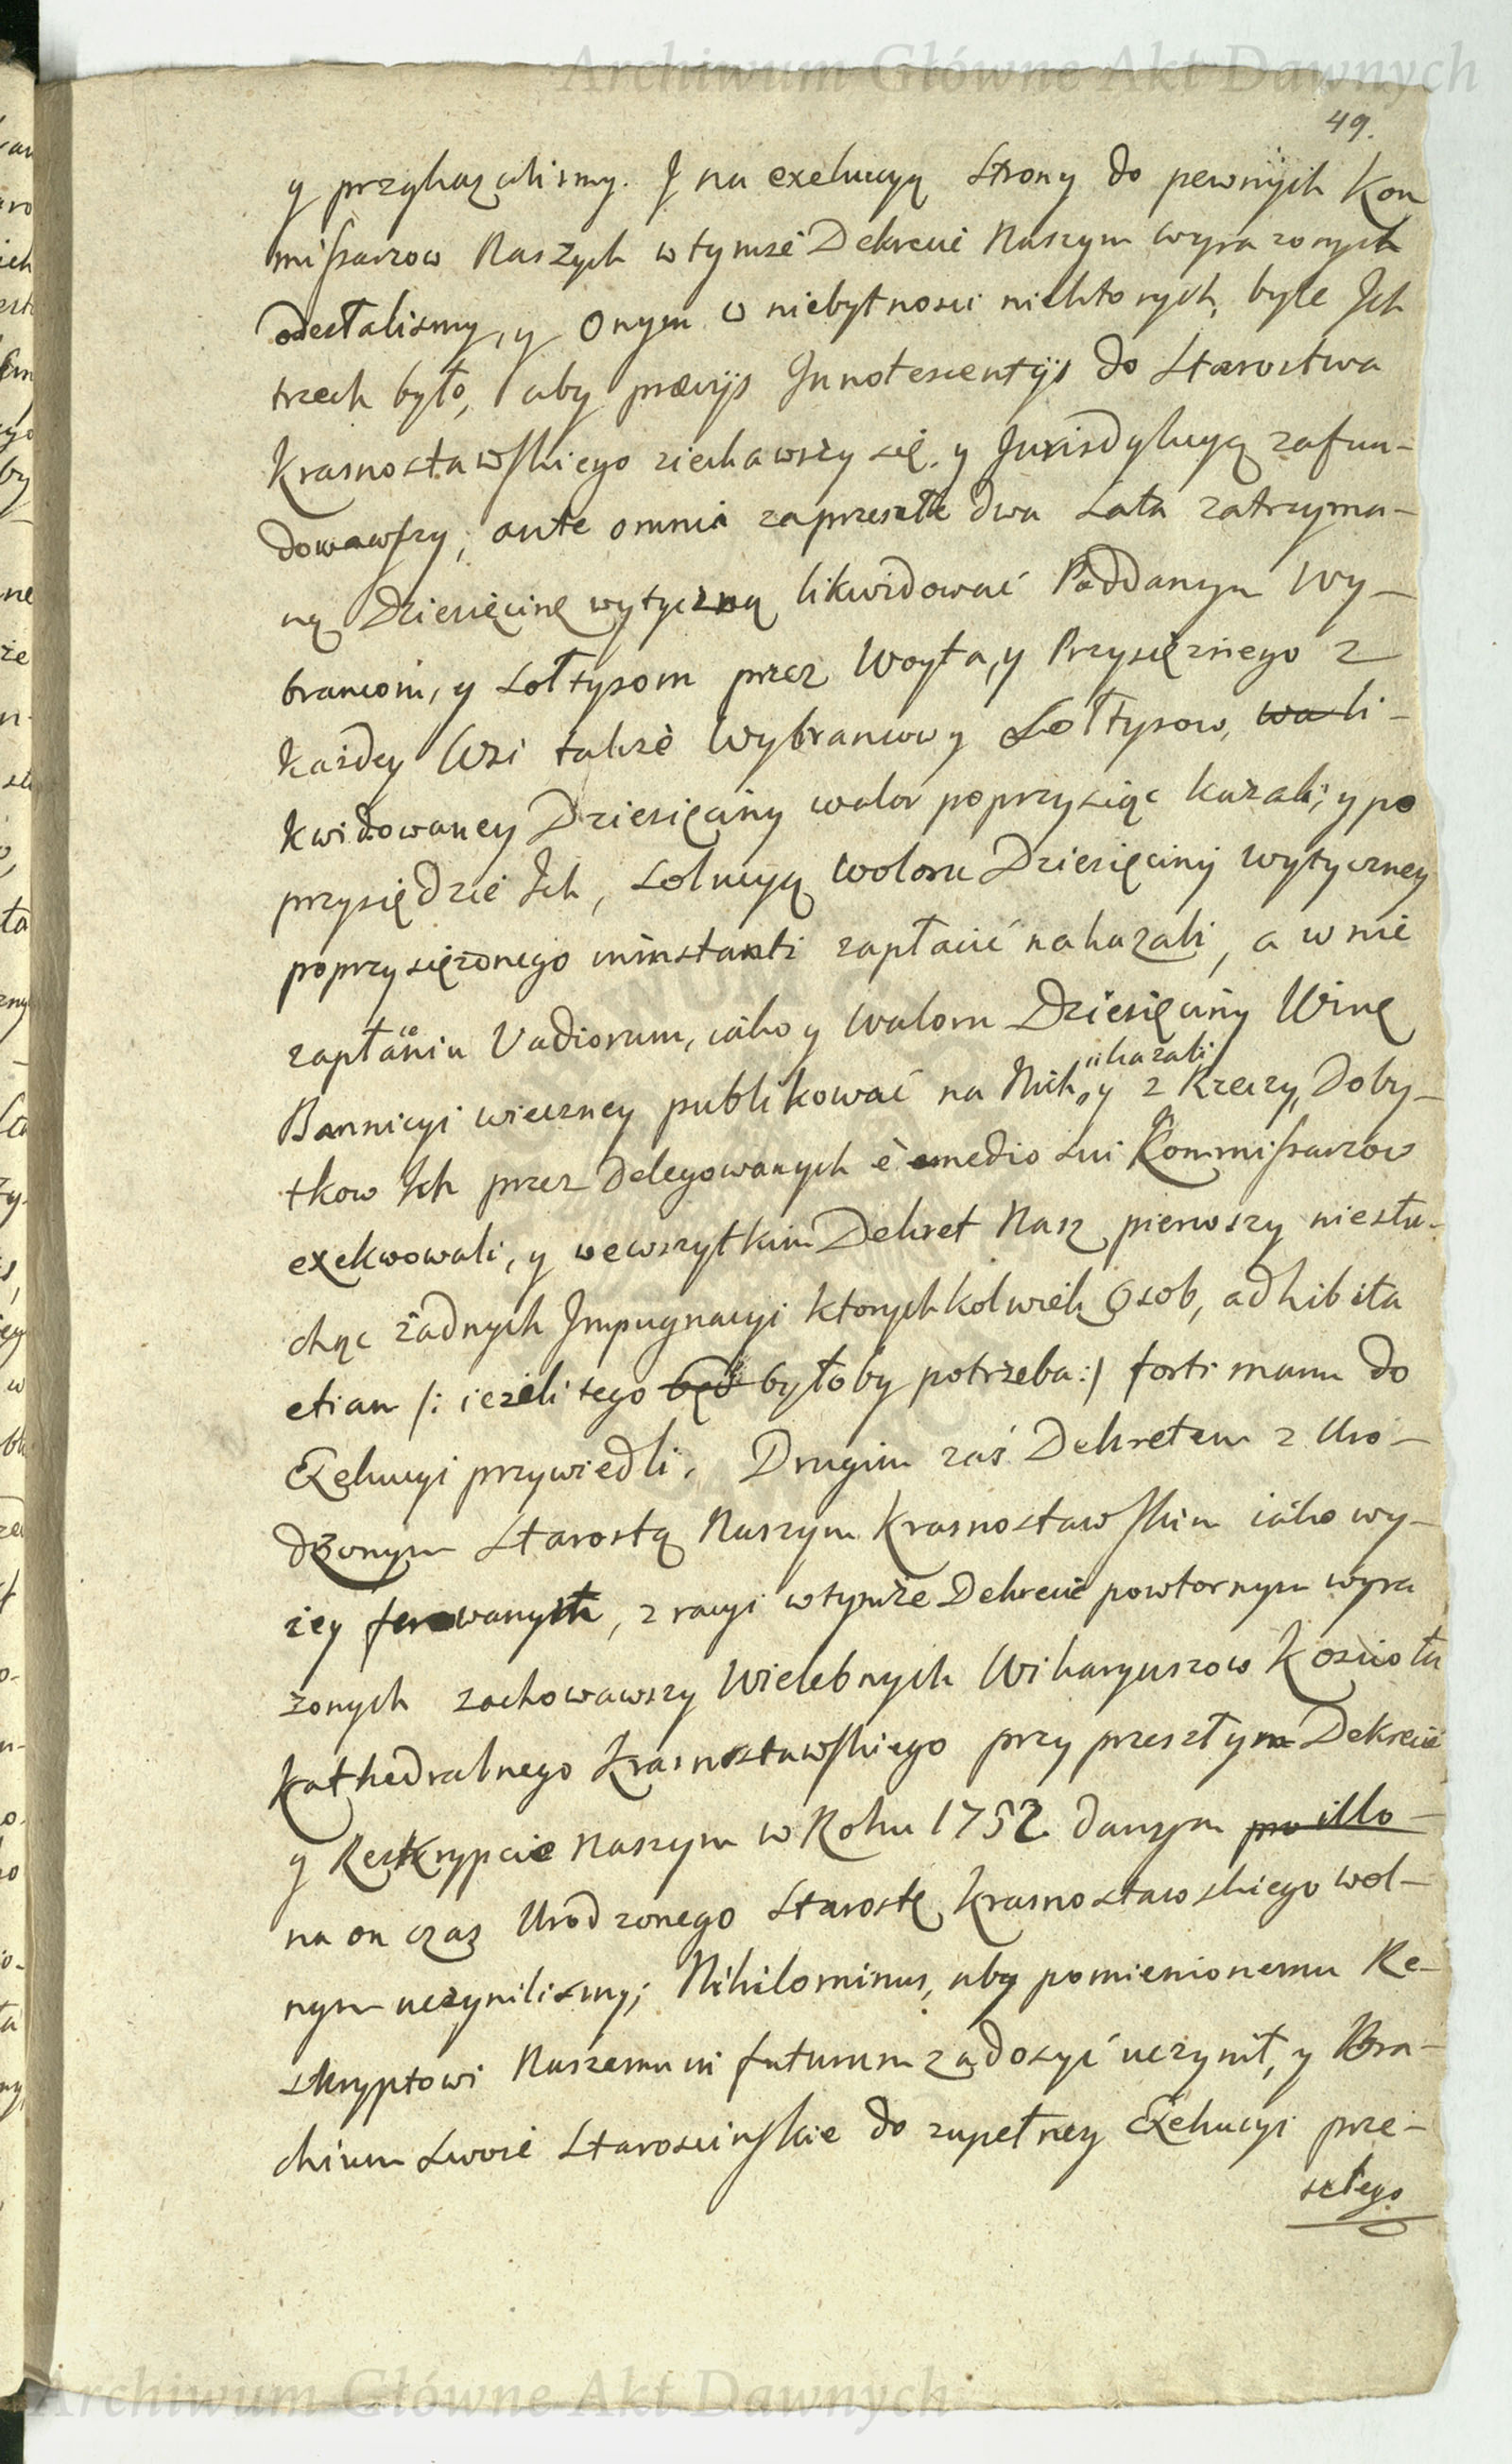 Archiwum Główne Akt Dawnych
49.
y przykazalismy. J na exekucyą Strony do pewnych Kom
missarzow Naszych w tymże Dekrecie Naszym wyrażonych
odesłalismy, y Onym w niebytnosci niektorych, byle Jch
trzech było, aby prævijs Jnnotescentijs do Starostwa
Krasnostawskiego ziechawszy się. y Jurisdykcyą zafun-
dowawszy; ante omnia zaprzeszłe dwa Lata zatrzyma-
ną Dziesięcinę wytyczną likwidować Poddanym Wy-
brancom, y Sołtysom przez Woyta, y Przysięznego z
każdey Wsi także Wybrancow y Sołtysow, wa li-
kwidowaney Dziesięciny walor poprzysiąc kazali; y po
przysiędze Jch, Solucyą Waloru Dziesięciny wytyczney
poprzysiężonego in instanti zapłacić nakazali, a w nie
zapłaceniu Vadiorum, iako y Waloru Dziesięciny Winę
Bannicyi wieczney publikować na Nich, kazali y z Rzeczy, Doby-
tkow Jch przez Delegowanych è medio sui Kommissarzow
exekwowali, y we wszytkim Dekret Nasz pierwszy niesłu-
chąc żadnych Jmpugnacyi ktorychkolwiek Osob, adhibita
etiam /: ieżeli tego będ byłoby potrzeba :/ forti manu do
Exekucyi przywiedli. Drugim zaś Dekretem z Uro-
dzonym Starostą Naszym Krasnostawskim iako wy-
żey ferowanym, z racyi w tymże Dekrecie powtornym wyra
żonych zachowawszy Wielebnych Wikaryuszow Koscioła
Kathedralnego Krasnostawskiego przy przeszłym Dekrecie
y Reskrypcie Naszym w Roku 1752. danym pro illo
na on czas Urodzonego Starostę Krasnostawskiego wol-
nym uczynilismy; Nihilominus, aby pomienionemu Re-
skryptowi Naszemu in futurum zadosyć uczynił, y Bra-
chium Swoie Staroscinskie do zupełney Exekucyi prze-
szłego
Archiwum Główne Akt Dawnych